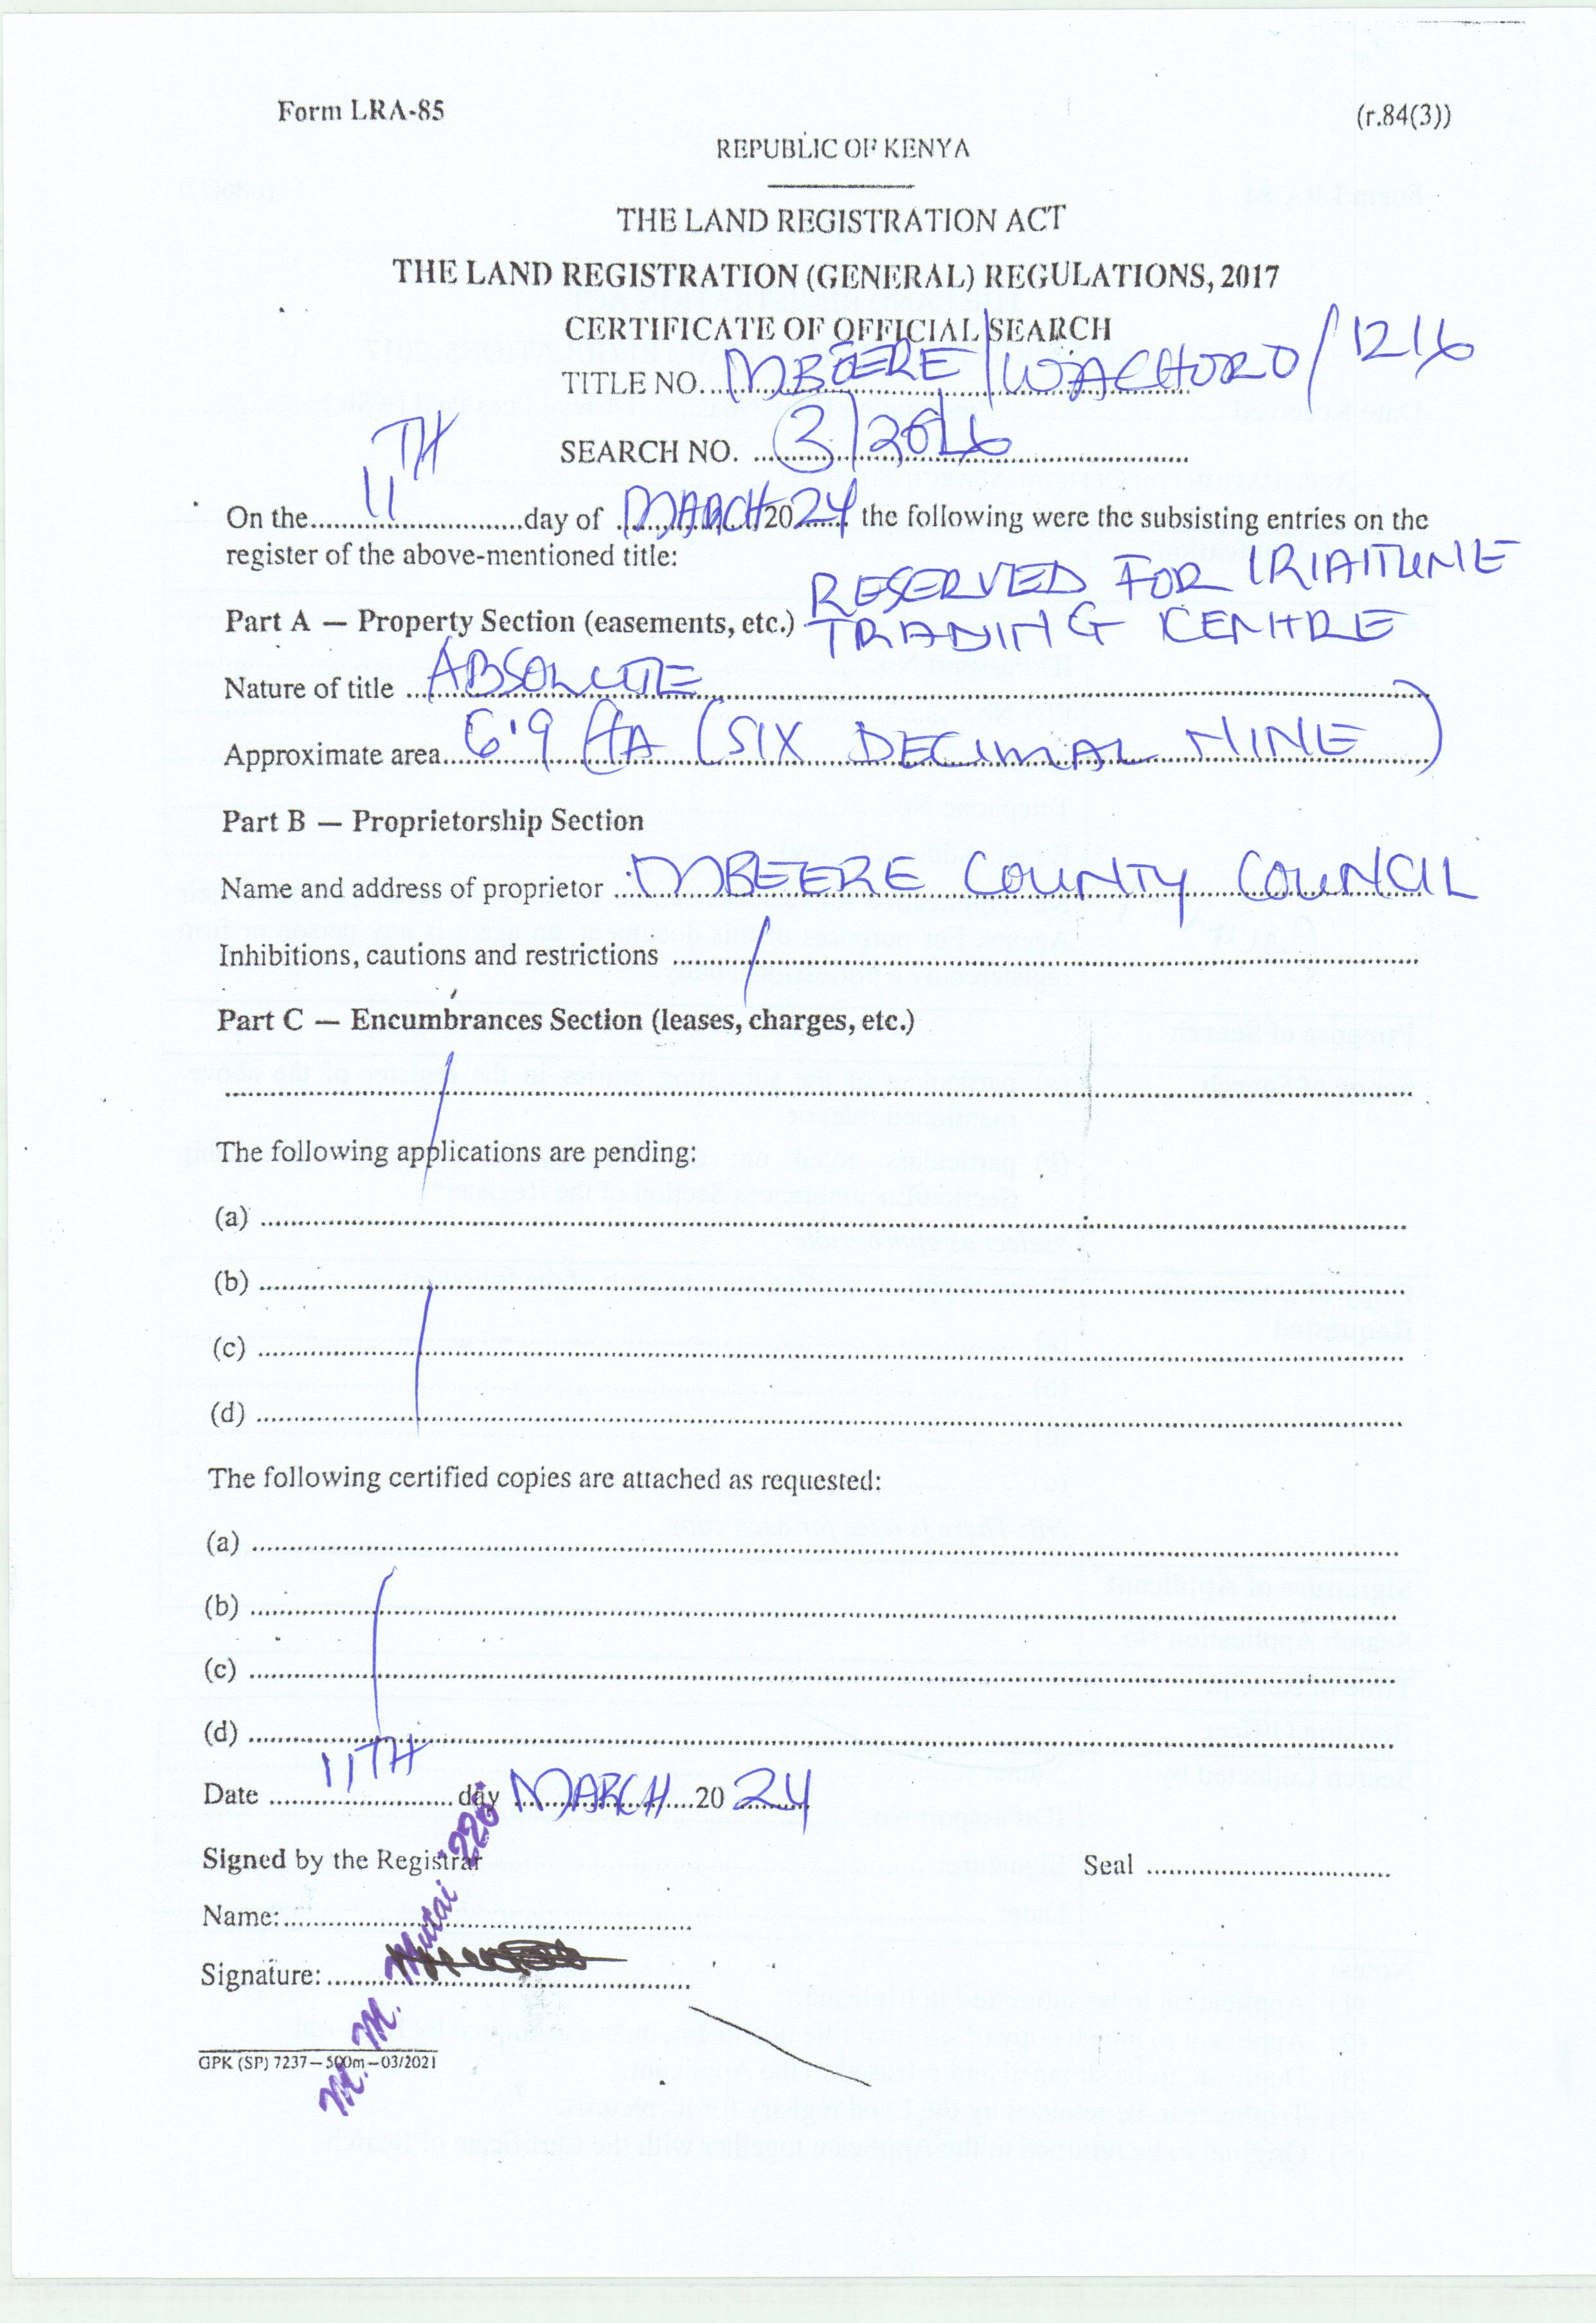 Form LRA-85 (r.84(3))
REPUBLIC OF KENYA
THE LAND REGISTRATION ACT
THE LAND REGISTRATION (GENERAL) REGULATIONS, 2017
CERTIFICATE OF OFFICIAL SEARCH
TITLE NO. MBEERE/WACHORO/1216
SEARCH NO. 3/2016
On the 11TH day of MARCH 2024 the following were the subsisting entries on the
register of the above-mentioned title:
Part A — Property Section (easements, etc.) RESERVED FOR IRIAITUNE
TRADING CENTRE
Nature of title ABSOLUTE
Approximate area 6.9 HA (SIX DECIMAL NINE)
Part B — Proprietorship Section
Name and address of proprietor MBEERE COUNTY COUNCIL
Inhibitions, cautions and restrictions
Part C — Encumbrances Section (leases, charges, etc.)
The following applications are pending:
(a)
(b)
(c)
(d)
The following certified copies are attached as requested:
(a)
(b)
(c)
(d)
Date 11TH day MARCH 2024
Signed by the Registrar Seal
Name:
Signature:
M. M. Mutai 226
GPK (SP) 7237—500m—03/2021